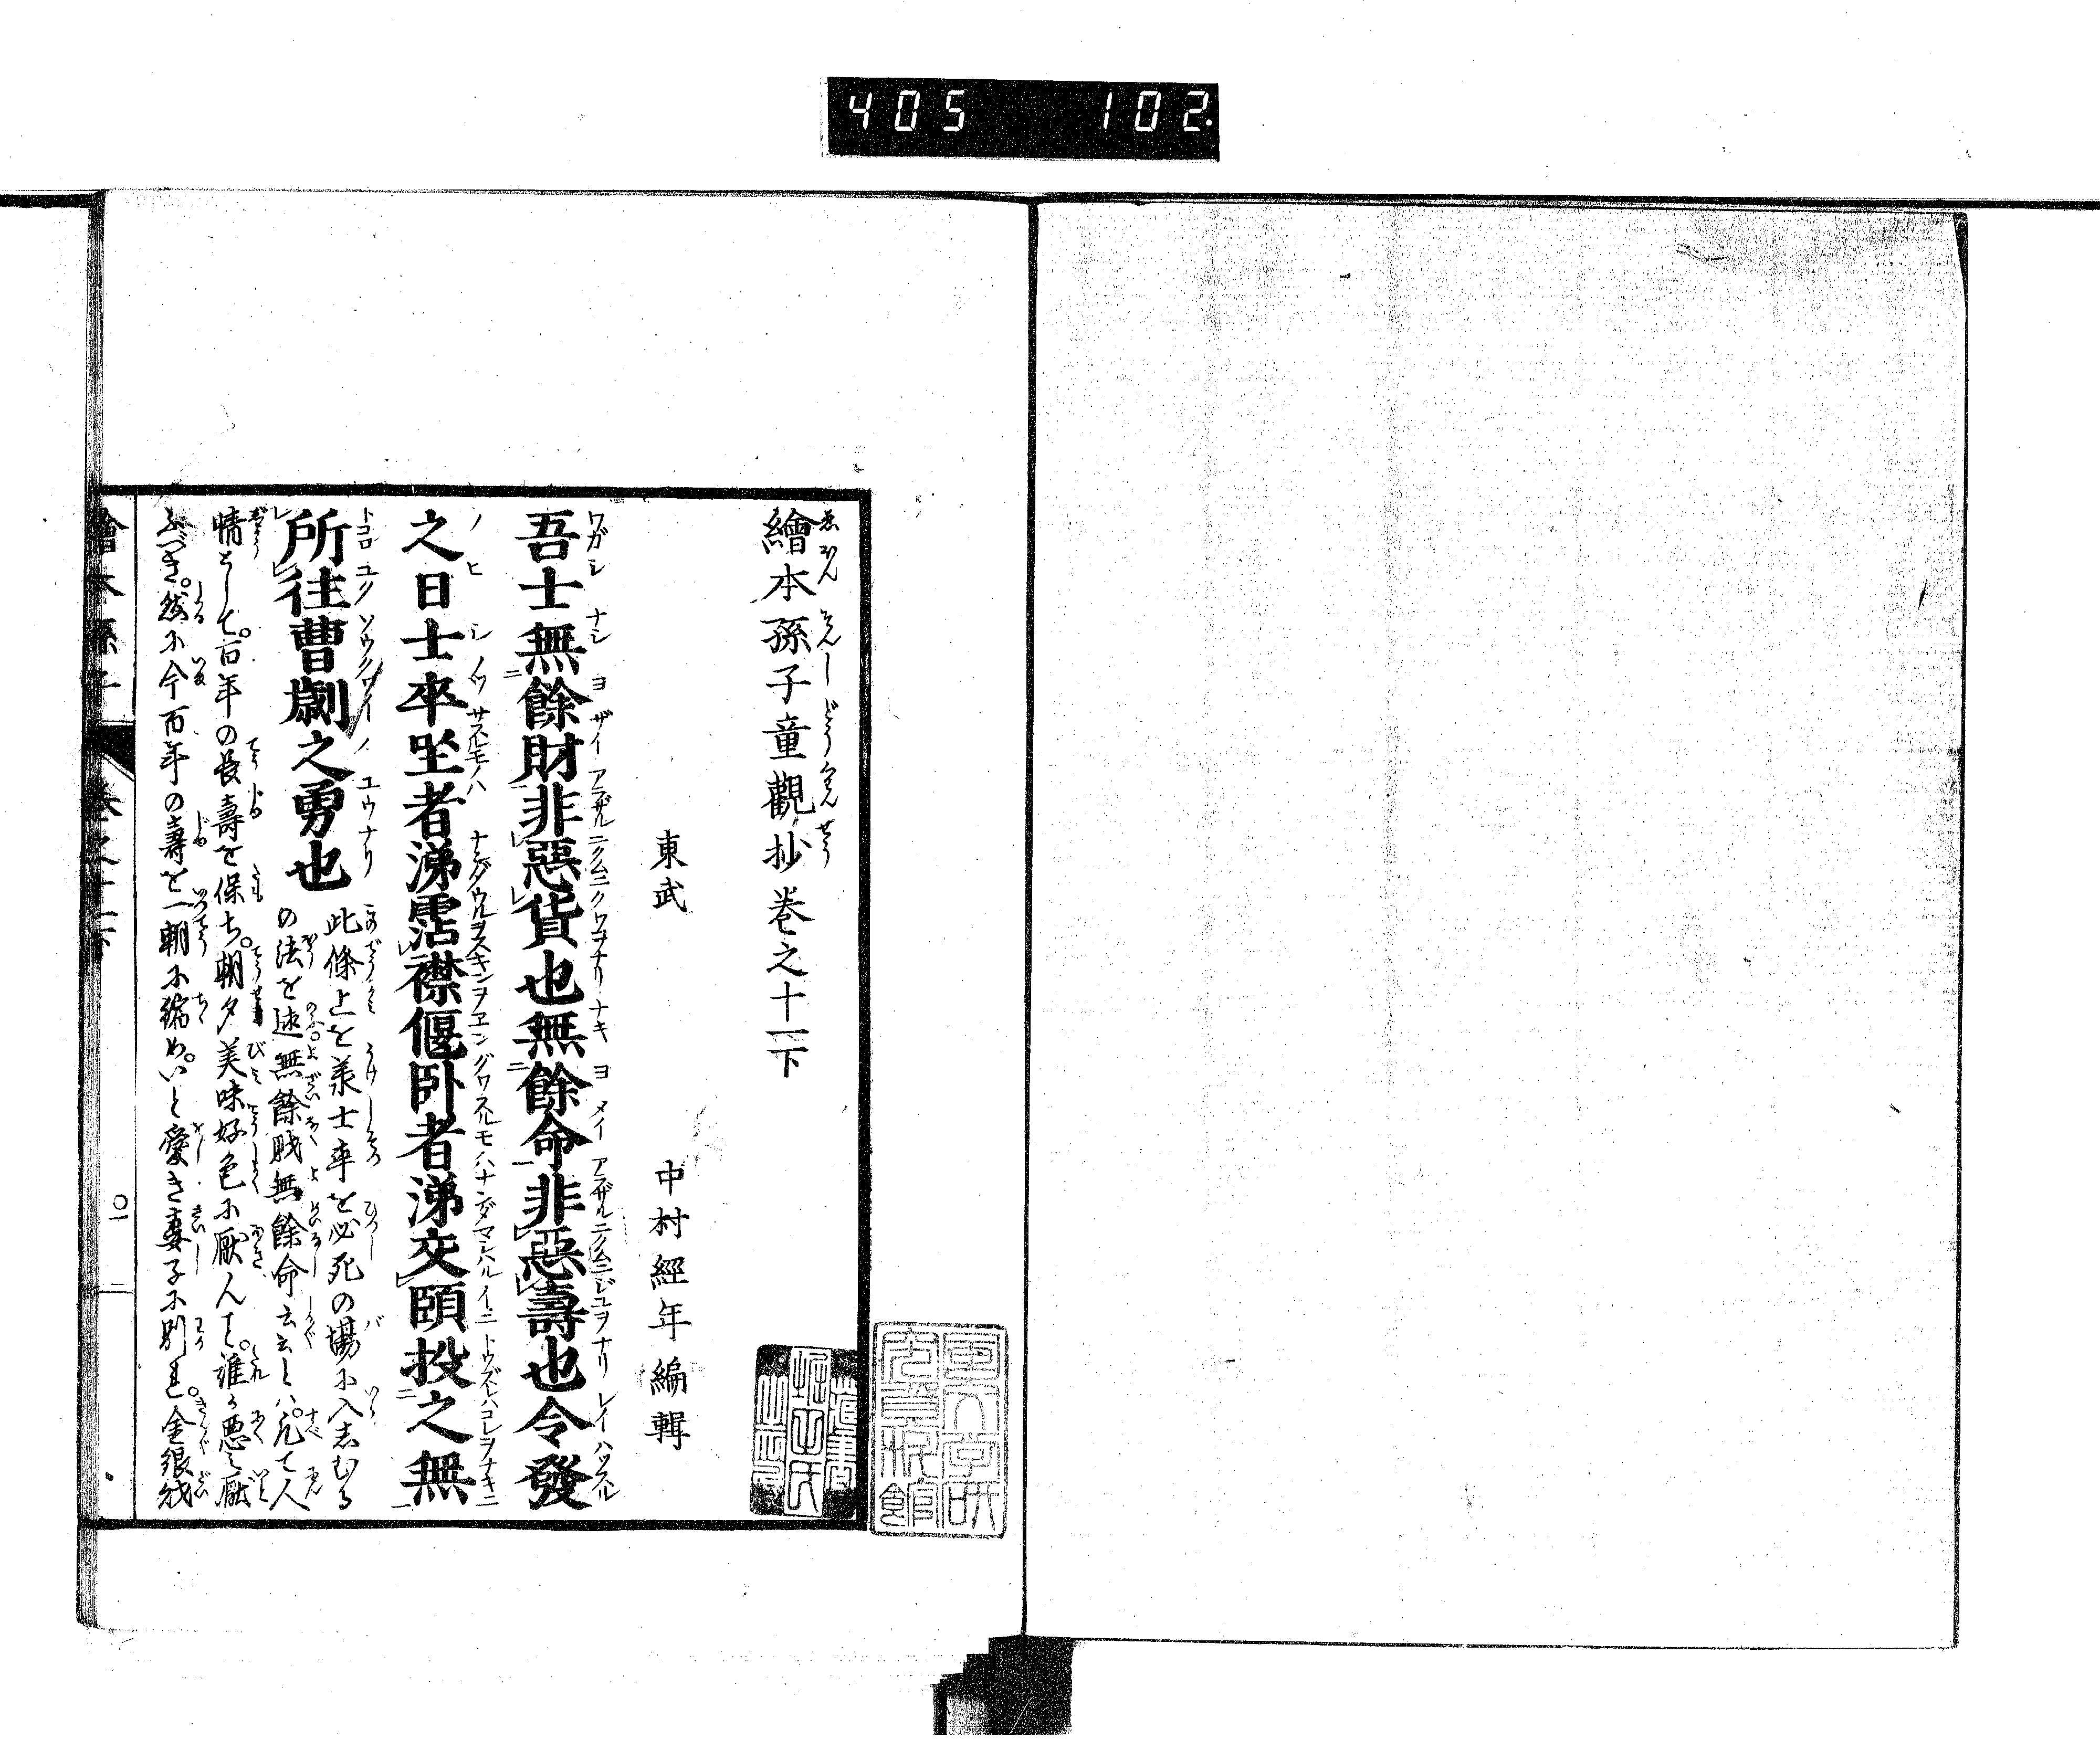 405 102
繪本孫子童觀抄卷之十一下
東武 中村經年編輯
吾士無餘財非惡貨也無餘命非惡壽也令發
之日士卒坐者涕霑襟偃臥者涕交頤投之無
所往曹劌之勇也
此條上を承士卒を必死の場に入志むる
の法を述無餘財無餘命云云とハ。凡て人
情として。百年の長壽を保ち。朝夕美味好色に厭んで。誰か悪之厭
ふべき。然に今百年の壽を一朝に縮め。いと愛き妻子に別れ。金銀財
繪本孫子 卷之十一下